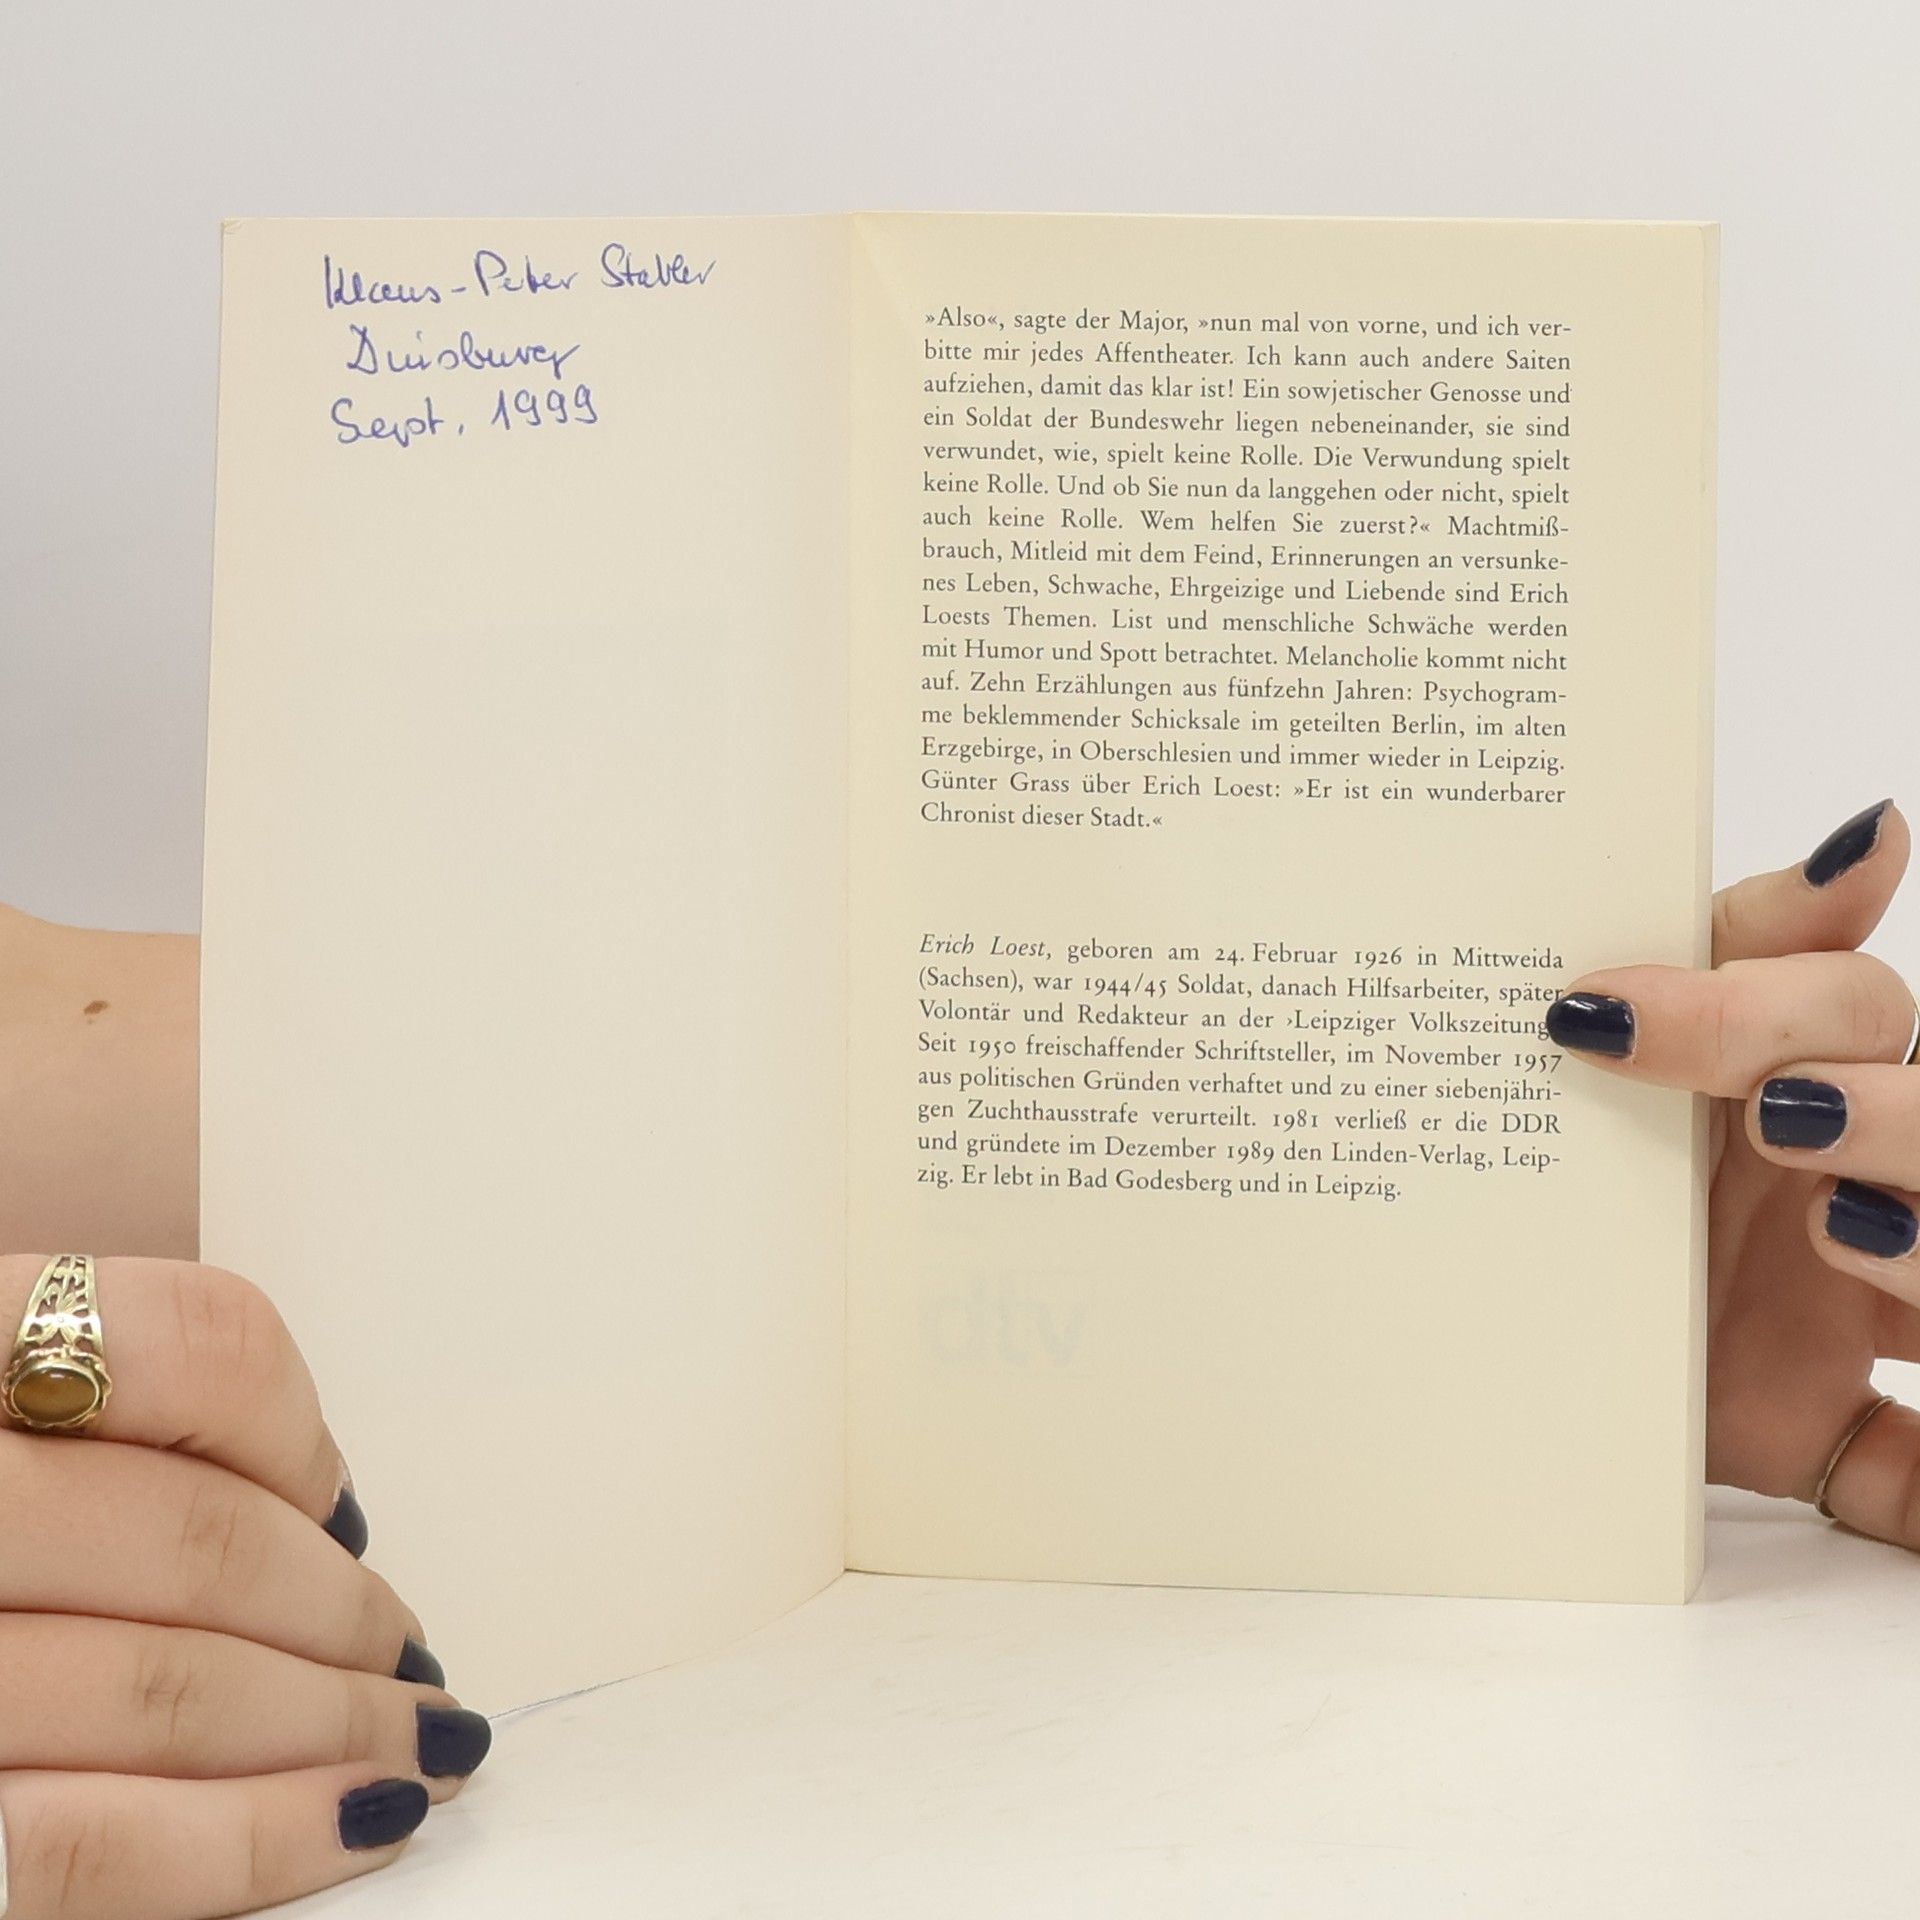 Klaus-Peter Stabler
Duisburg
Sept. 1999
»Also«, sagte der Major, »nun mal von vorne, und ich ver-
bitte mir jedes Affentheater. Ich kann auch andere Saiten
aufziehen, damit das klar ist! Ein sowjetischer Genosse und
ein Soldat der Bundeswehr liegen nebeneinander, sie sind
verwundet, wie, spielt keine Rolle. Die Verwundung spielt
keine Rolle. Und ob Sie nun da langgehen oder nicht, spielt
auch keine Rolle. Wem helfen Sie zuerst?« Machtmiß-
brauch, Mitleid mit dem Feind, Erinnerungen an versunke-
nes Leben, Schwache, Ehrgeizige und Liebende sind Erich
Loests Themen. List und menschliche Schwäche werden
mit Humor und Spott betrachtet. Melancholie kommt nicht
auf. Zehn Erzählungen aus fünfzehn Jahren: Psychogram-
me beklemmender Schicksale im geteilten Berlin, im alten
Erzgebirge, in Oberschlesien und immer wieder in Leipzig.
Günter Grass über Erich Loest: »Er ist ein wunderbarer
Chronist dieser Stadt.«
Erich Loest, geboren am 24. Februar 1926 in Mittweida
(Sachsen), war 1944/45 Soldat, danach Hilfsarbeiter, später
Volontär und Redakteur an der ›Leipziger Volkszeitung
Seit 1950 freischaffender Schriftsteller, im November 1957
aus politischen Gründen verhaftet und zu einer siebenjähri-
gen Zuchthausstrafe verurteilt. 1981 verließ er die DDR
und gründete im Dezember 1989 den Linden-Verlag, Leip-
zig. Er lebt in Bad Godesberg und in Leipzig.
dtv